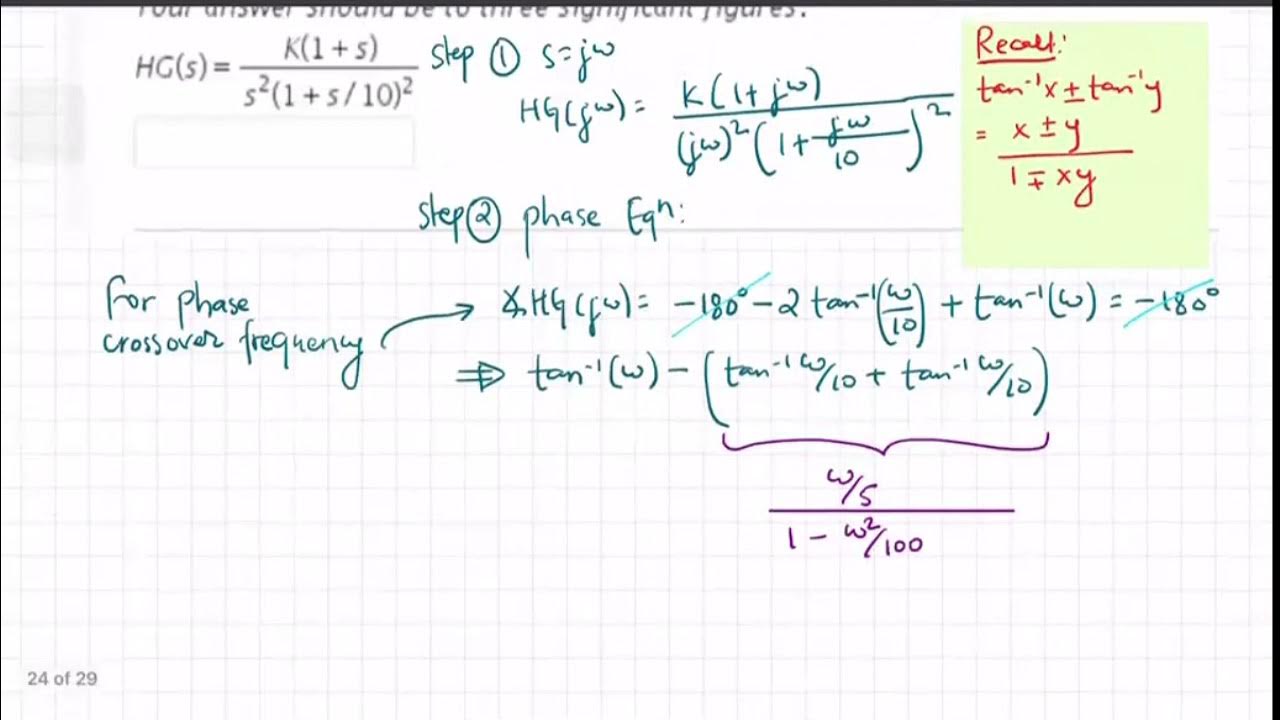 Your answer should be to three significant figures.
HG(s) = K(1 + s) / s²(1 + s/10)²
Step ① s=jω
HG(jω) = K(1 + jω) / (jω)²(1 + jω/10)²
Recall:
tan⁻¹x ± tan⁻¹y
= x ± y / 1 ∓ xy
Step ② phase Eqⁿ:
For phase
crossover frequency
∡HG(jω) = -180° - 2 tan⁻¹(ω/10) + tan⁻¹(ω) = -180°
⇒ tan⁻¹(ω) - (tan⁻¹ ω/10 + tan⁻¹ ω/10)
ω/5
1 - ω²/100
24 of 29